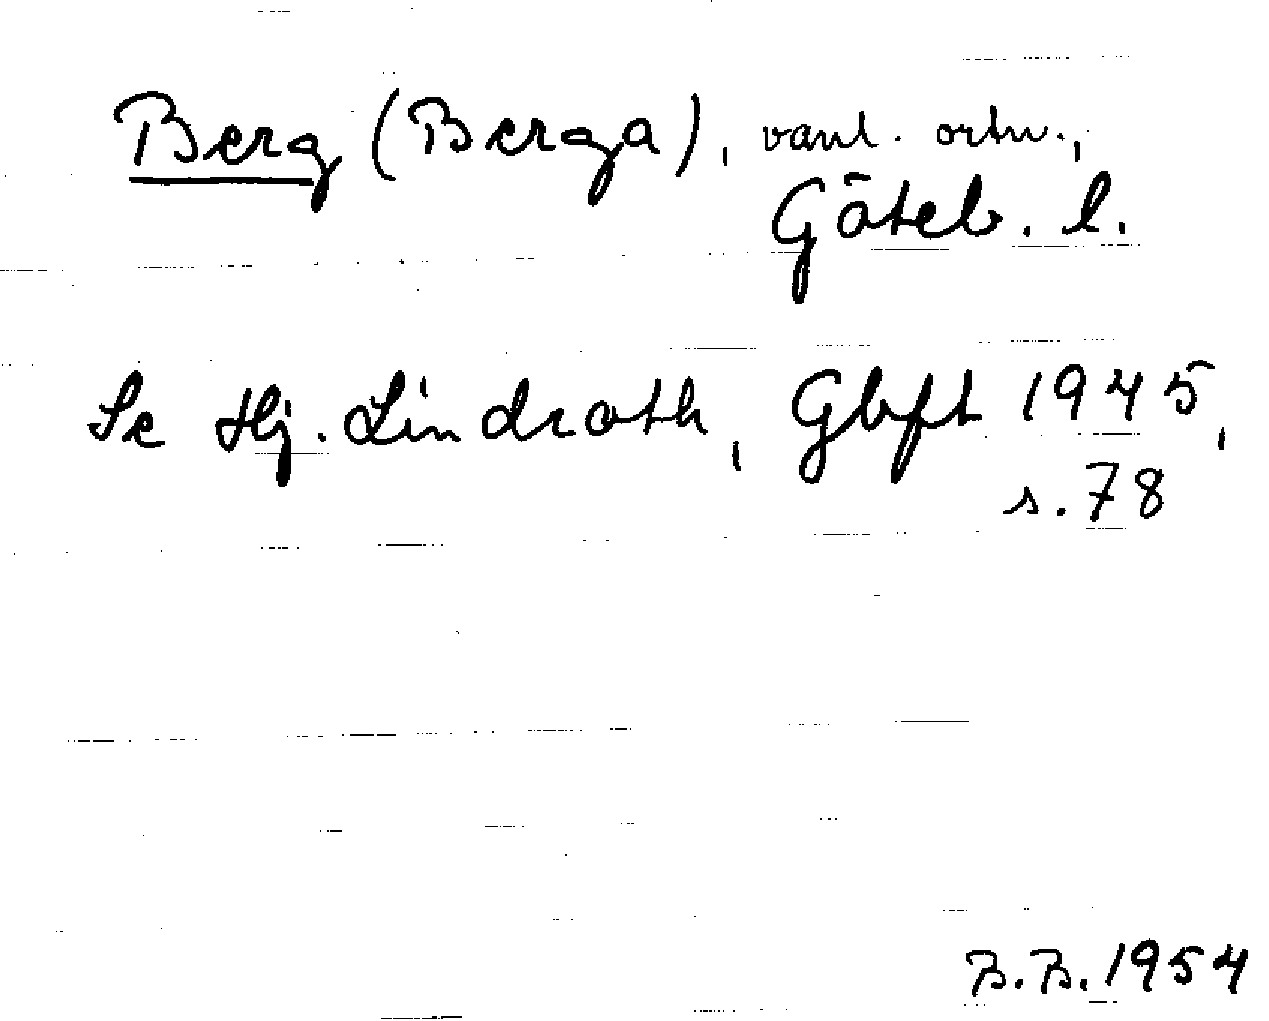 Berg (Berga), vanl. ortn.,
Göteb. l.
Se Hj. Lindroth, Gbft 1945,
s. 78
B.B. 1954